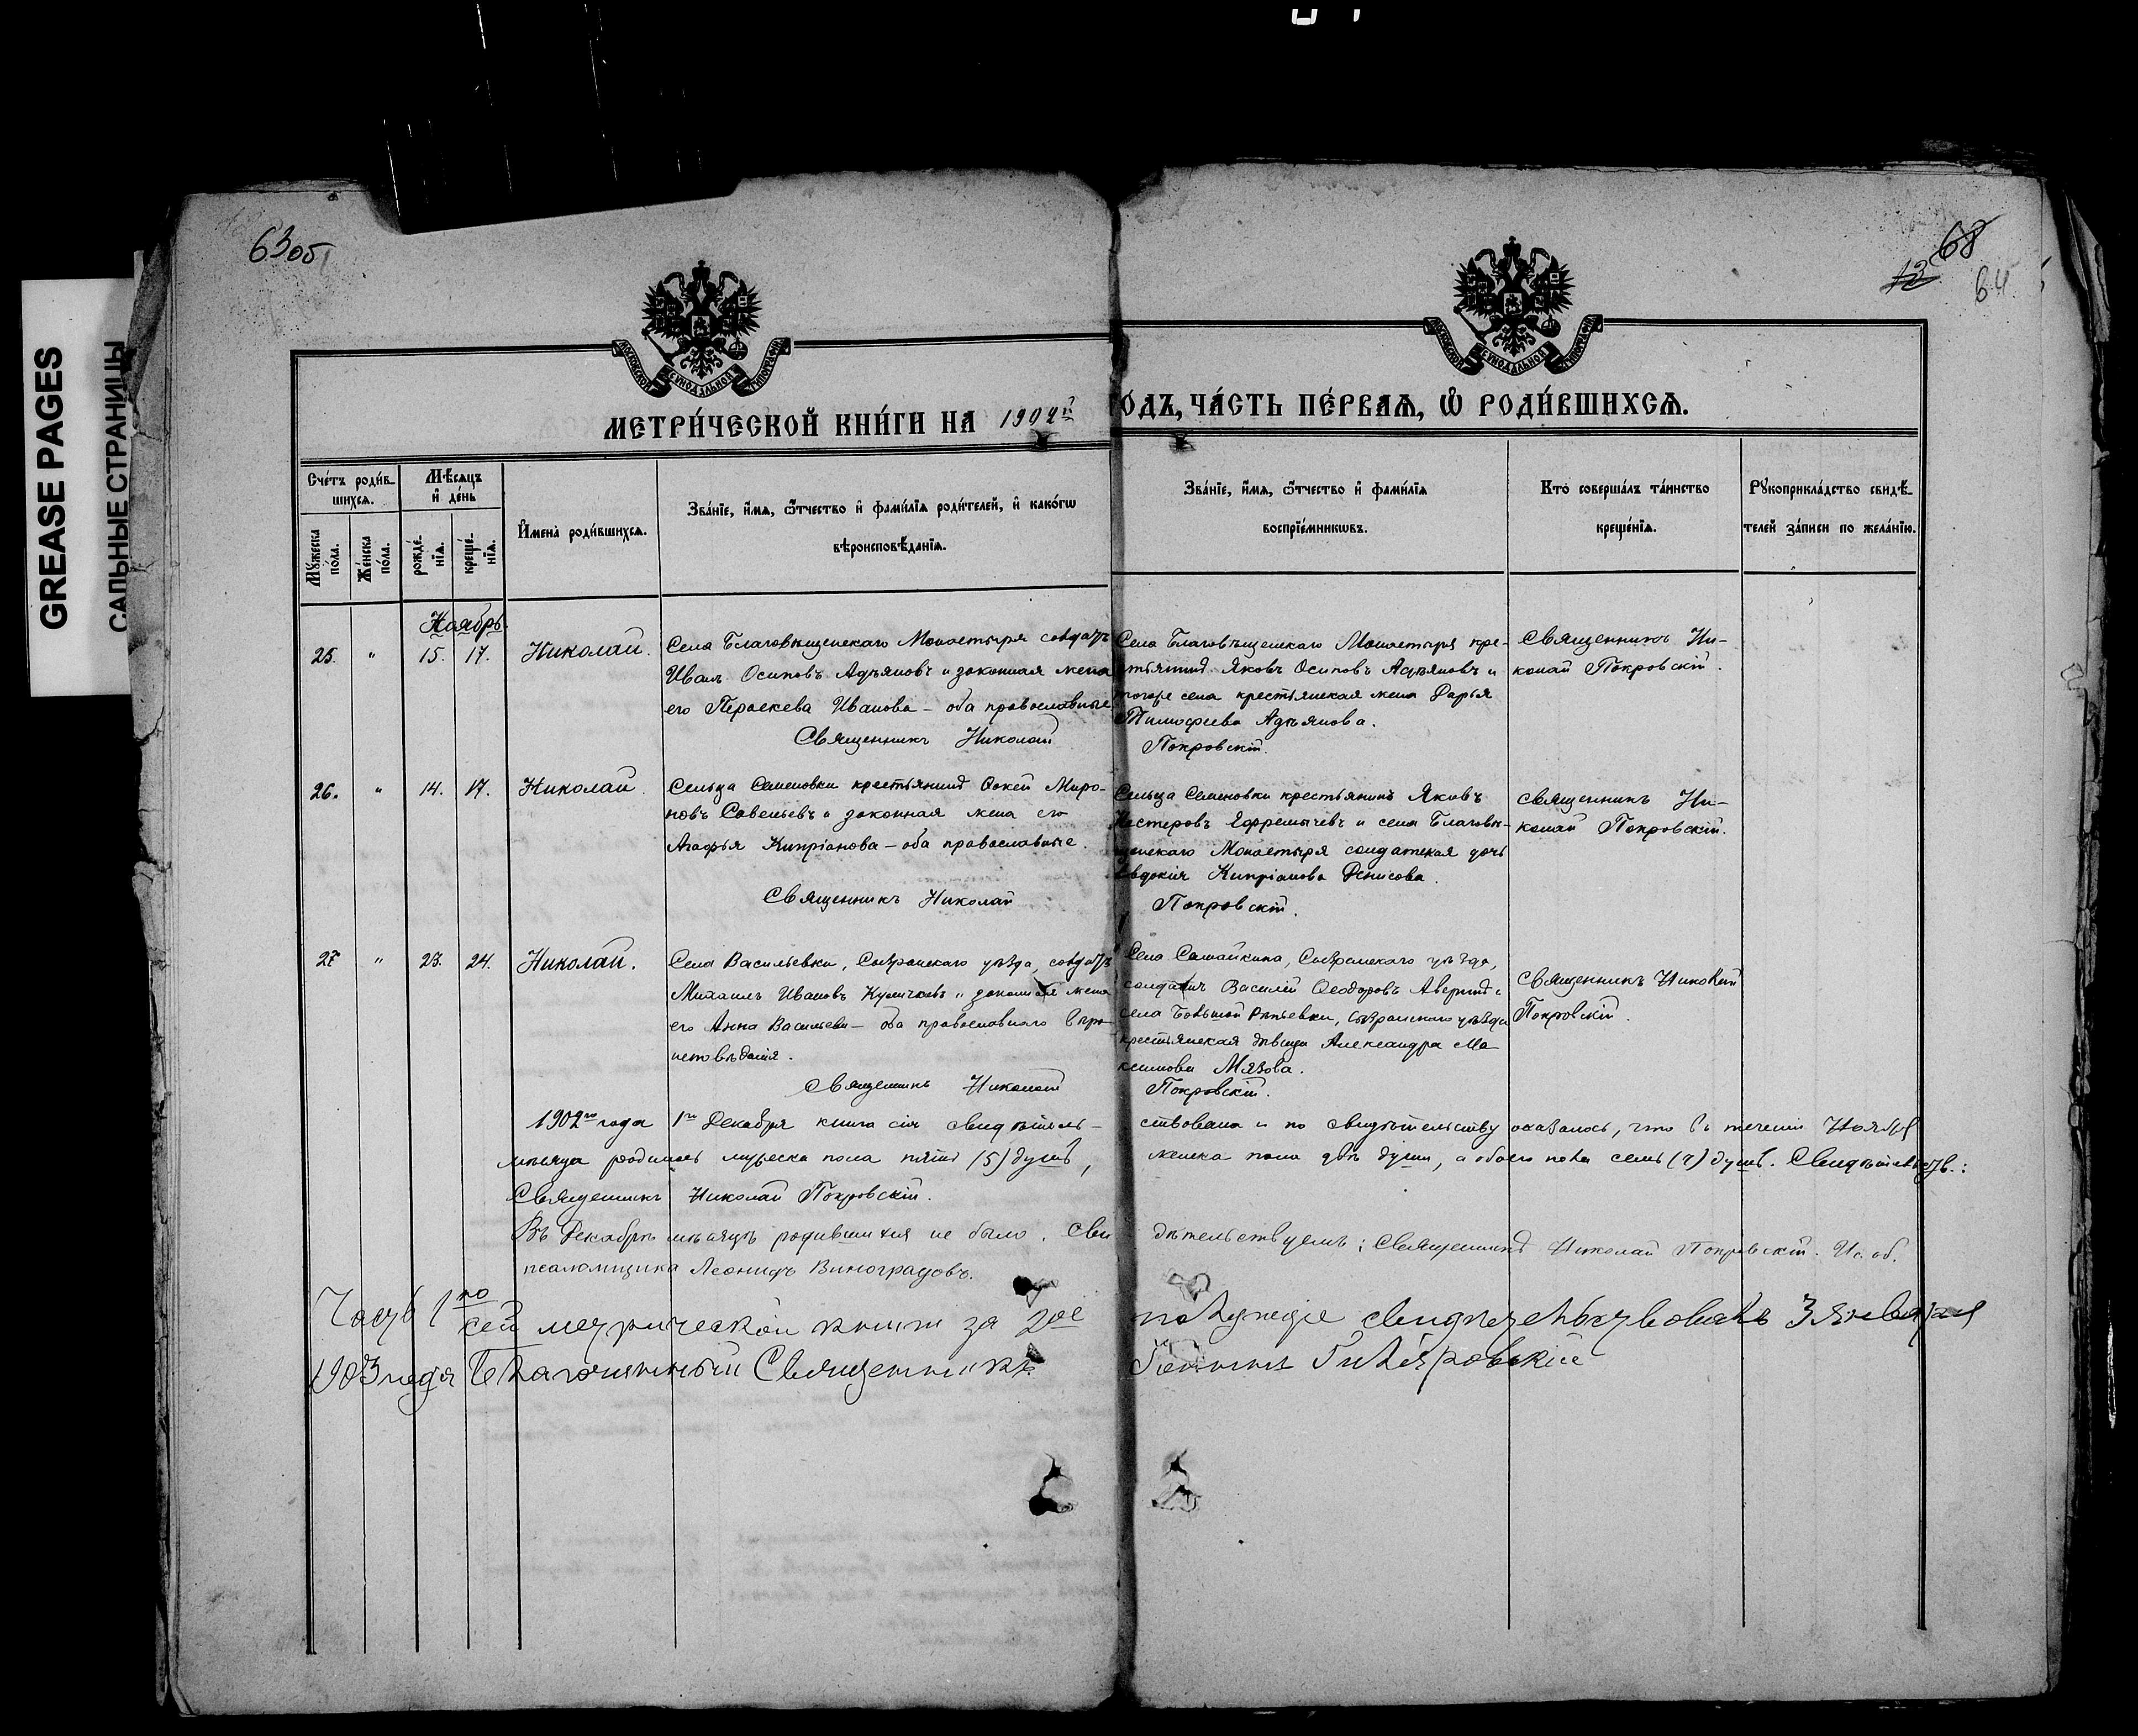 GREASE PAGES
САЛЬНЫЕ СТРАНИЦЫ
63об
68
13
64
МОСКОВСКОЙ СѴНОДАЛЬНОЙ ТИПОГРАФІИ
МОСКОВСКОЙ СѴНОДАЛЬНОЙ ТИПОГРАФІИ
МЕТРИ́ЧЕСКОЙ КНИ́ГИ НА 1902й
ОДЪ, ЧА́СТЬ ПЕ́РВАѦ, Ѡ҆ РОДИ́ВШИХСѦ.
Сче́тъ роди́в-
шихсѧ.
Мꙋ́жеска по́ла.
Же́нска по́ла.
Мѣ́сѧцъ
и҆ де́нь
рожде́-
нїѧ.
креще́-
нїѧ.
И҆мена̀ роди́вшихсѧ.
Зва́нїе, и҆́мѧ, ѻ҆́тчество и҆ фами́лїѧ роди́телей, и҆ како́гѡ
вѣроисповѣ́данїѧ.
Зва́нїе, и҆́мѧ, ѻ҆́тчество и҆ фами́лїѧ
воспрїе́мникѡвъ.
Кто̀ соверша́лъ та́инство
креще́нїѧ.
Рꙋкоприкла́дство свидѣ́-
телей за́писи по жела́нїю.
Ноябрь.
25. " 15. 17. Николай.
Села Благовѣщенскаго Монастыря солдатъ
Иванъ Осиповъ Адъяновъ и законная жена
его Параскева Иванова – оба православные
Священникъ Николай
Села Благовѣщенскаго Монастыря кре-
стьянинъ Яковъ Осиповъ Адъяновъ и
тогоже села крестьянская жена Дарья
Тимофеева Адъянова.
Покровскій.
Священникъ Ни-
колай Покровскій.
26. " 14. 17. Николай.
Сельца Семеновки крестьянинъ Миро-
новъ Савельевъ и законная жена его
Агафья Кипріанова – оба православные.
Священникъ Николай
Сельца Семеновки крестьянинъ Яковъ
Нестеровъ Ефремычевъ и села Благовѣ-
щенскаго Монастыря солдатская дочь
Евдокія Кипріанова Денисова.
Покровскій.
священникъ Ни-
колай Покровскій.
27 " 23. 24. Николай.
Села Васильевки, Сызранскаго уѣзда, солдатъ
Михаилъ Ивановъ и законная жена
его Анна Васильева – оба православнаго вѣро-
исповѣданія.
Священникъ Николай
Села Самайкина, Сызранскаго уѣзда,
солдатъ Василій Ѳеодоровъ Аверинъ и
села Большой Репьевки, Сызранскаго уѣзда
крестьянская дѣвица Александра Ма-
ксимова Мязова.
Покровскій.
Священникъ Николай
Покровскій.
1902го года 1го Декабря книга сія свидѣтель-
ствована и по свидѣтельству оказалось, что въ теченіи Ноября
мѣсяца родилось мужеска пола пять (5) душъ,
женска пола двѣ души, а обоего пола семь (7) душъ. Свидѣтельств.:
Священникъ Николай Покровскій.
Въ Декабрѣ мѣсяцѣ родившихся не было. Сви
дѣтельствуемъ: Священникъ Николай Покровскій. Ис. об.
псаломщика Леонидъ Виноградовъ.
Часть 1ю сей метрической книги за 2ое
полугодіе свидѣтельствовалъ 3 Января
1903 года Благочинный Священникъ